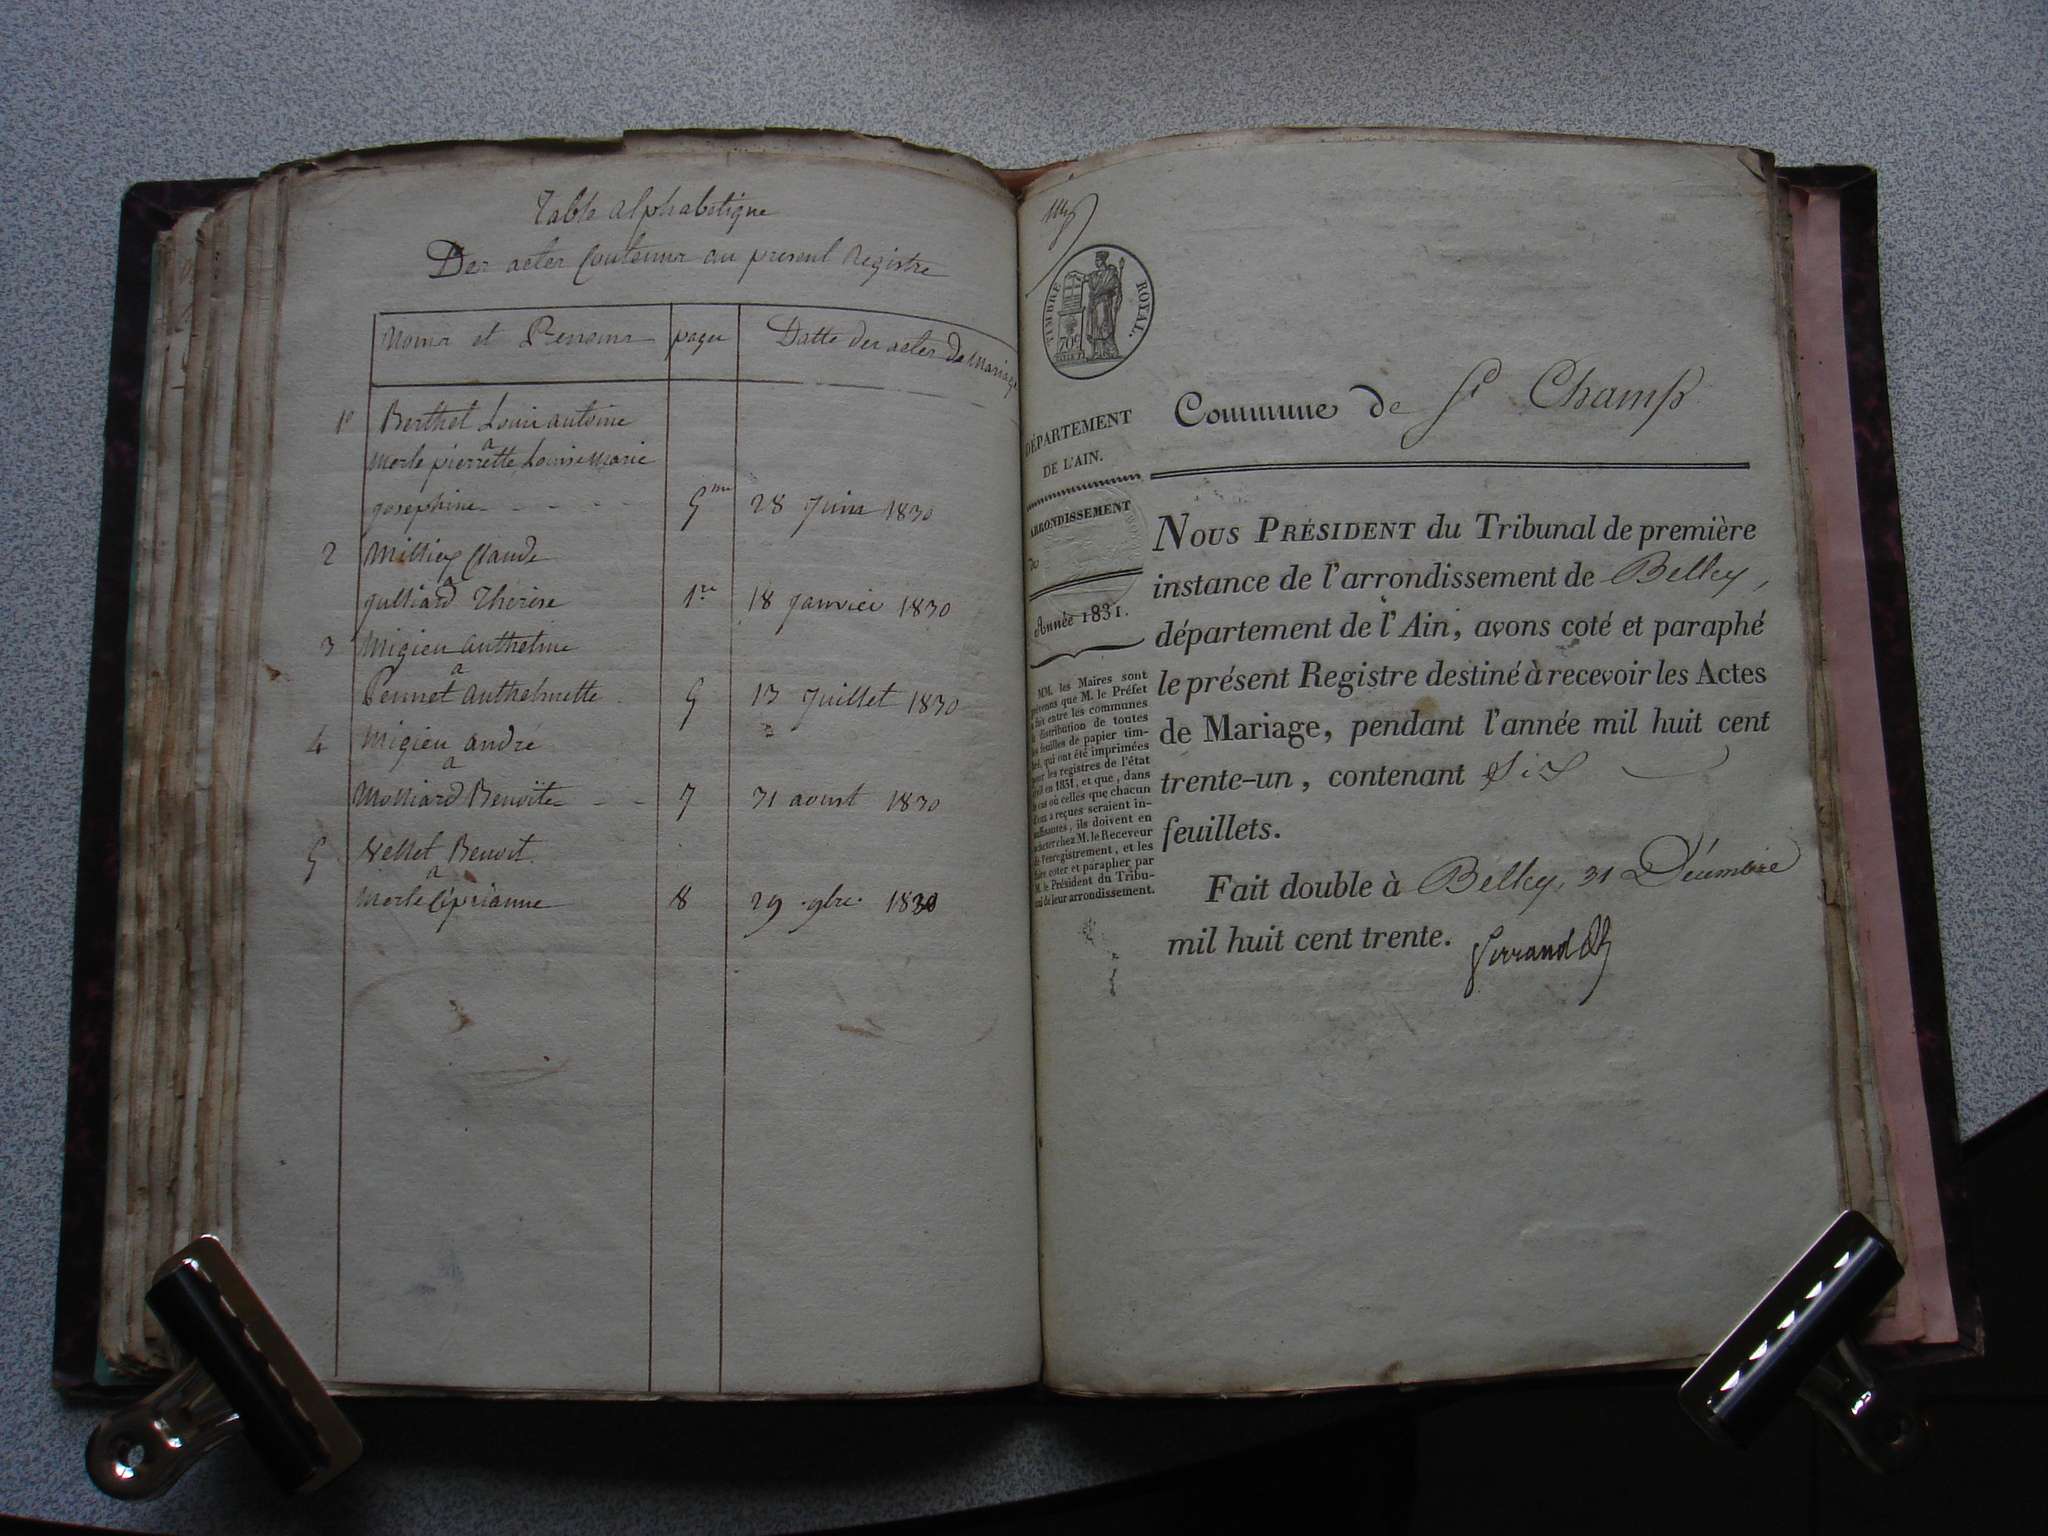 Table alphabetique
Des actes Contenus au present Registre
Noms et Prenoms
pages
Datte des actes de Mariage
1º Berthet Louis antoine
a
Merle pierrette Louise Marie
josephine - - - - 5me 28 Juin 1830
2 Milliex Claude
a
julliard Therese 1re 18 janvier 1830
3 Migieu anthelme
a
Pennet anthelmette 5 13 Juillet 1830
4 Migieu andré
a
Molliard Benoite - - 7 31 aoust 1830
5 Vellet Benoit
a
Merle Ciprianne 8 29 9bre 1830
TIMBRE ROYAL.
70c
DÉPARTEMENT
DE L'AIN.
ARRONDISSEMENT
de
Année 1831.
MM. les Maires sont
prévenus que M. le Préfet
a fait entre les communes
la distribution de toutes
les feuilles de papier tim-
bré, qui ont été imprimées
pour les registres de l'état
civil en 1831, et que, dans
le cas où celles que chacun
d'eux a reçues seraient in-
suffisantes, ils doivent en
acheter chez M. le Receveur
de l'enregistrement, et les
faire coter et parapher par
M. le Président du Tribu-
nal de leur arrondissement.
Commune de St Champ
NOUS PRÉSIDENT du Tribunal de première
instance de l'arrondissement de Belley,
département de l'Ain, avons coté et paraphé
le présent Registre destiné à recevoir les Actes
de Mariage, pendant l'année mil huit cent
trente-un, contenant Six
feuillets.
Fait double à Belley, 31 Décembre
mil huit cent trente.